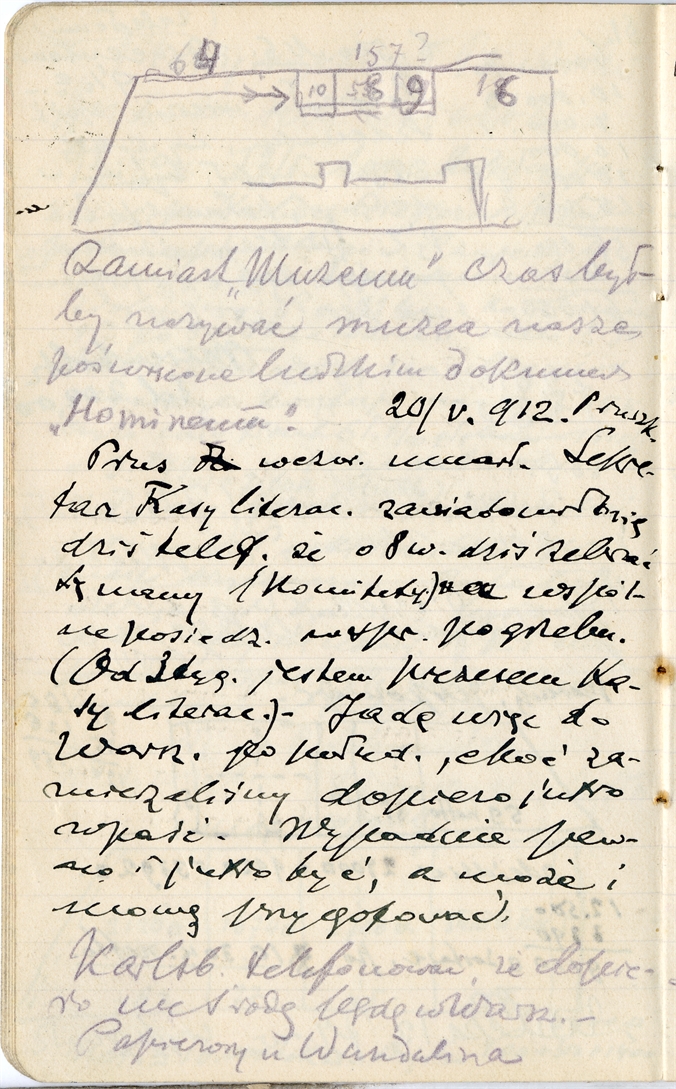 64 157?
10 58 9 16
Zamiast „Muzeum" czas był-
by nazywać muzea nasze
poświęcone ludzkim dokumen
„Homineum".
20/V. 912. Pruszk.
Prus wczor. umarł. Sekre-
tarz Kasy literac. zawiadomił mię
dziś telef. że o 8 w. dziś zebrać
się mamy (Komitety) na wspól-
ne posiedz. w spr. pogrzebu.
(Od 3 tyg. jestem prezesem Ka-
sy literac.) - Jadę więc do
Warsz. po połud., choć za-
mierzaliśmy dopiero jutro
wpaść. Wypadnie pew-
no i jutro być, a może i
mowę przygotować.
Karlsb. telefonował, że dopie-
ro we środę będę w Warsz. -
Papierosy u Wandalina